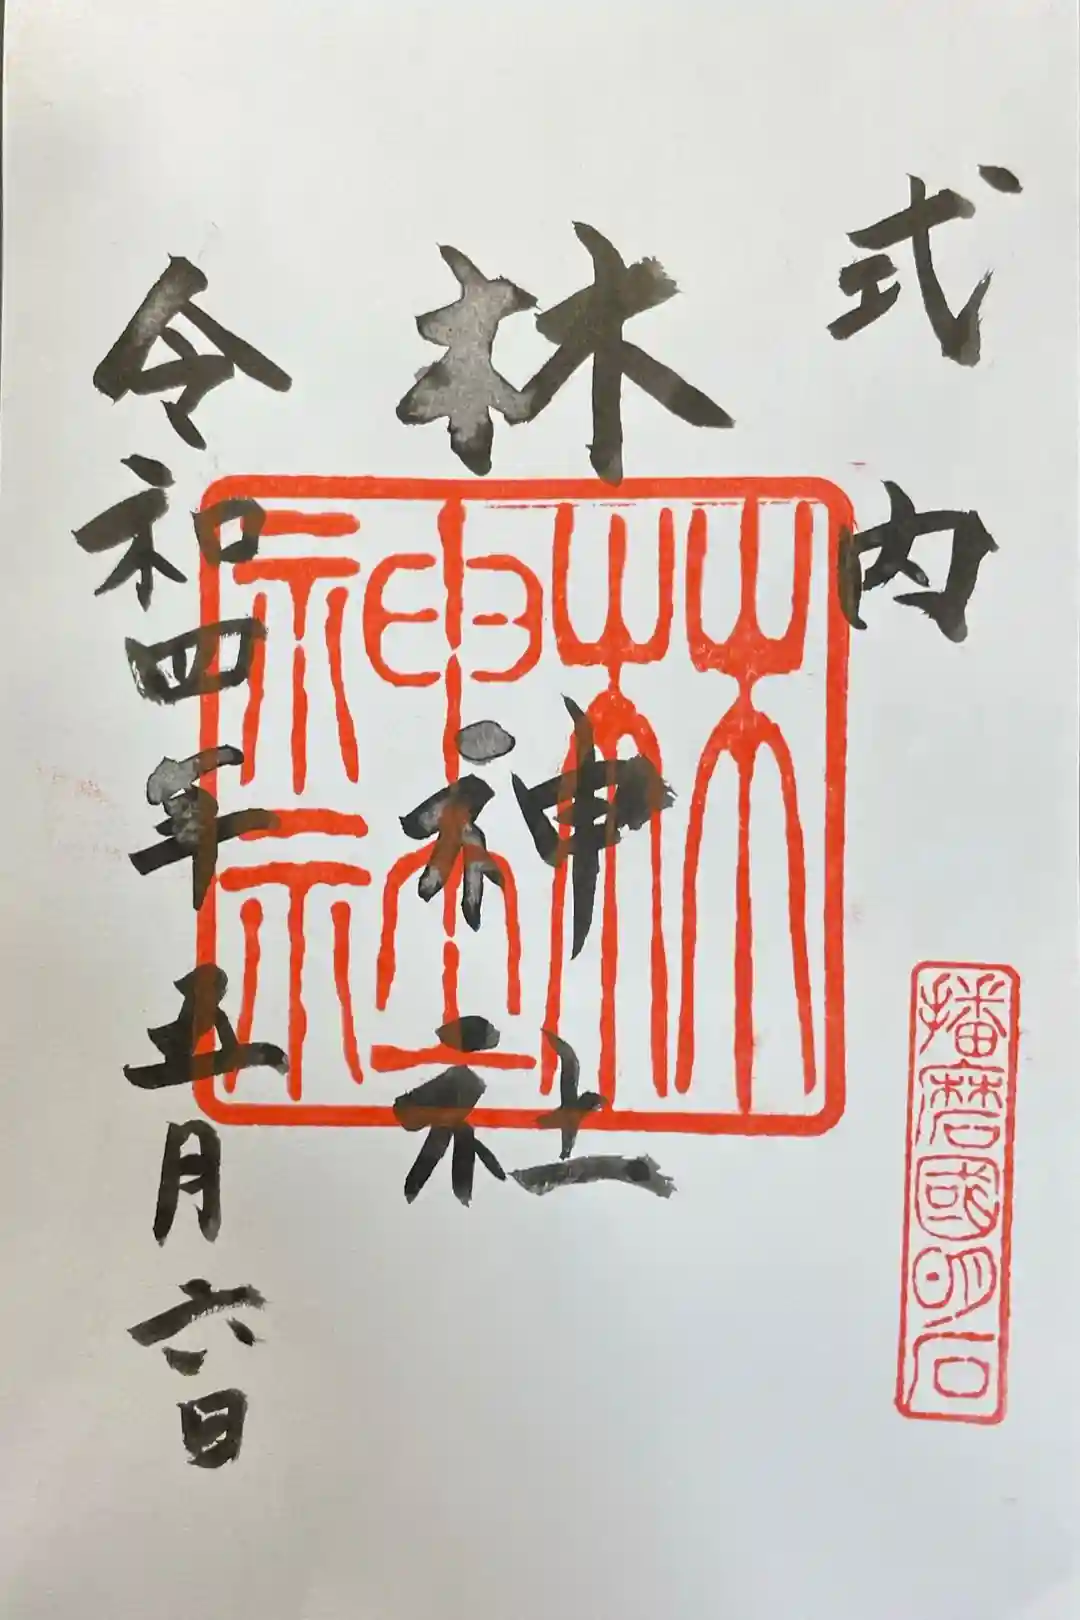 式内
林神社
林神社
令和四年五月六日
播磨國明石